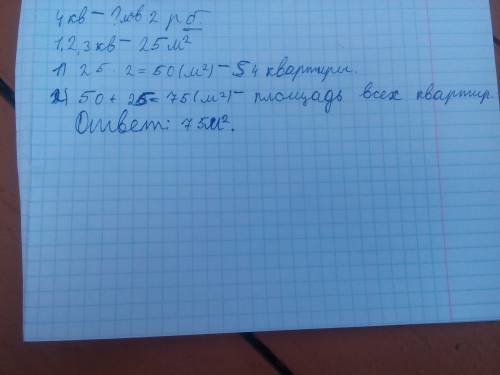 4 кв - ? м в 2 р б.
1,2,3 кв - 25 м²
1) 25 · 2 = 50 (м²) - S 4 квартиры.
2) 50 + 25 = 75 (м²) - площадь всех квартир.
Ответ: 75м².